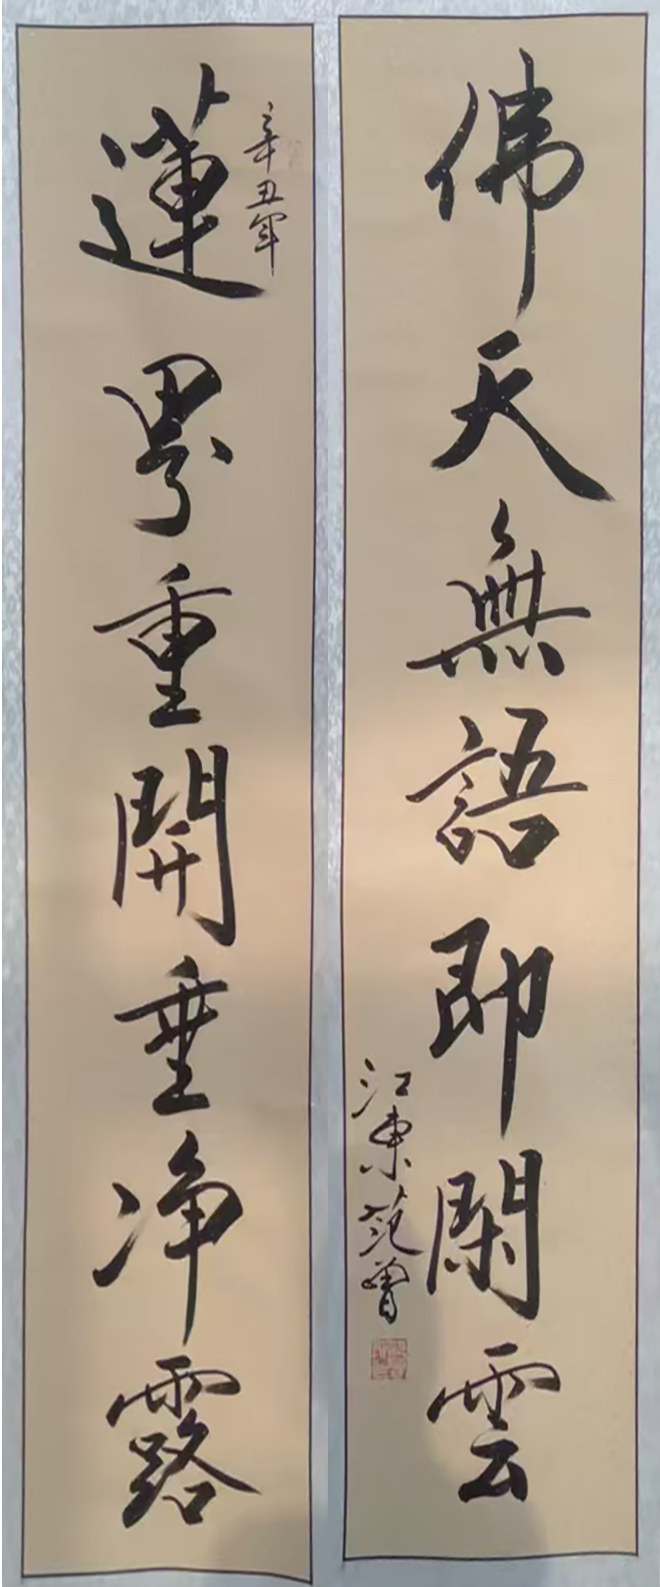 佛天無語即閑雲
江東范曾
辛丑年
蓮界重開垂净露